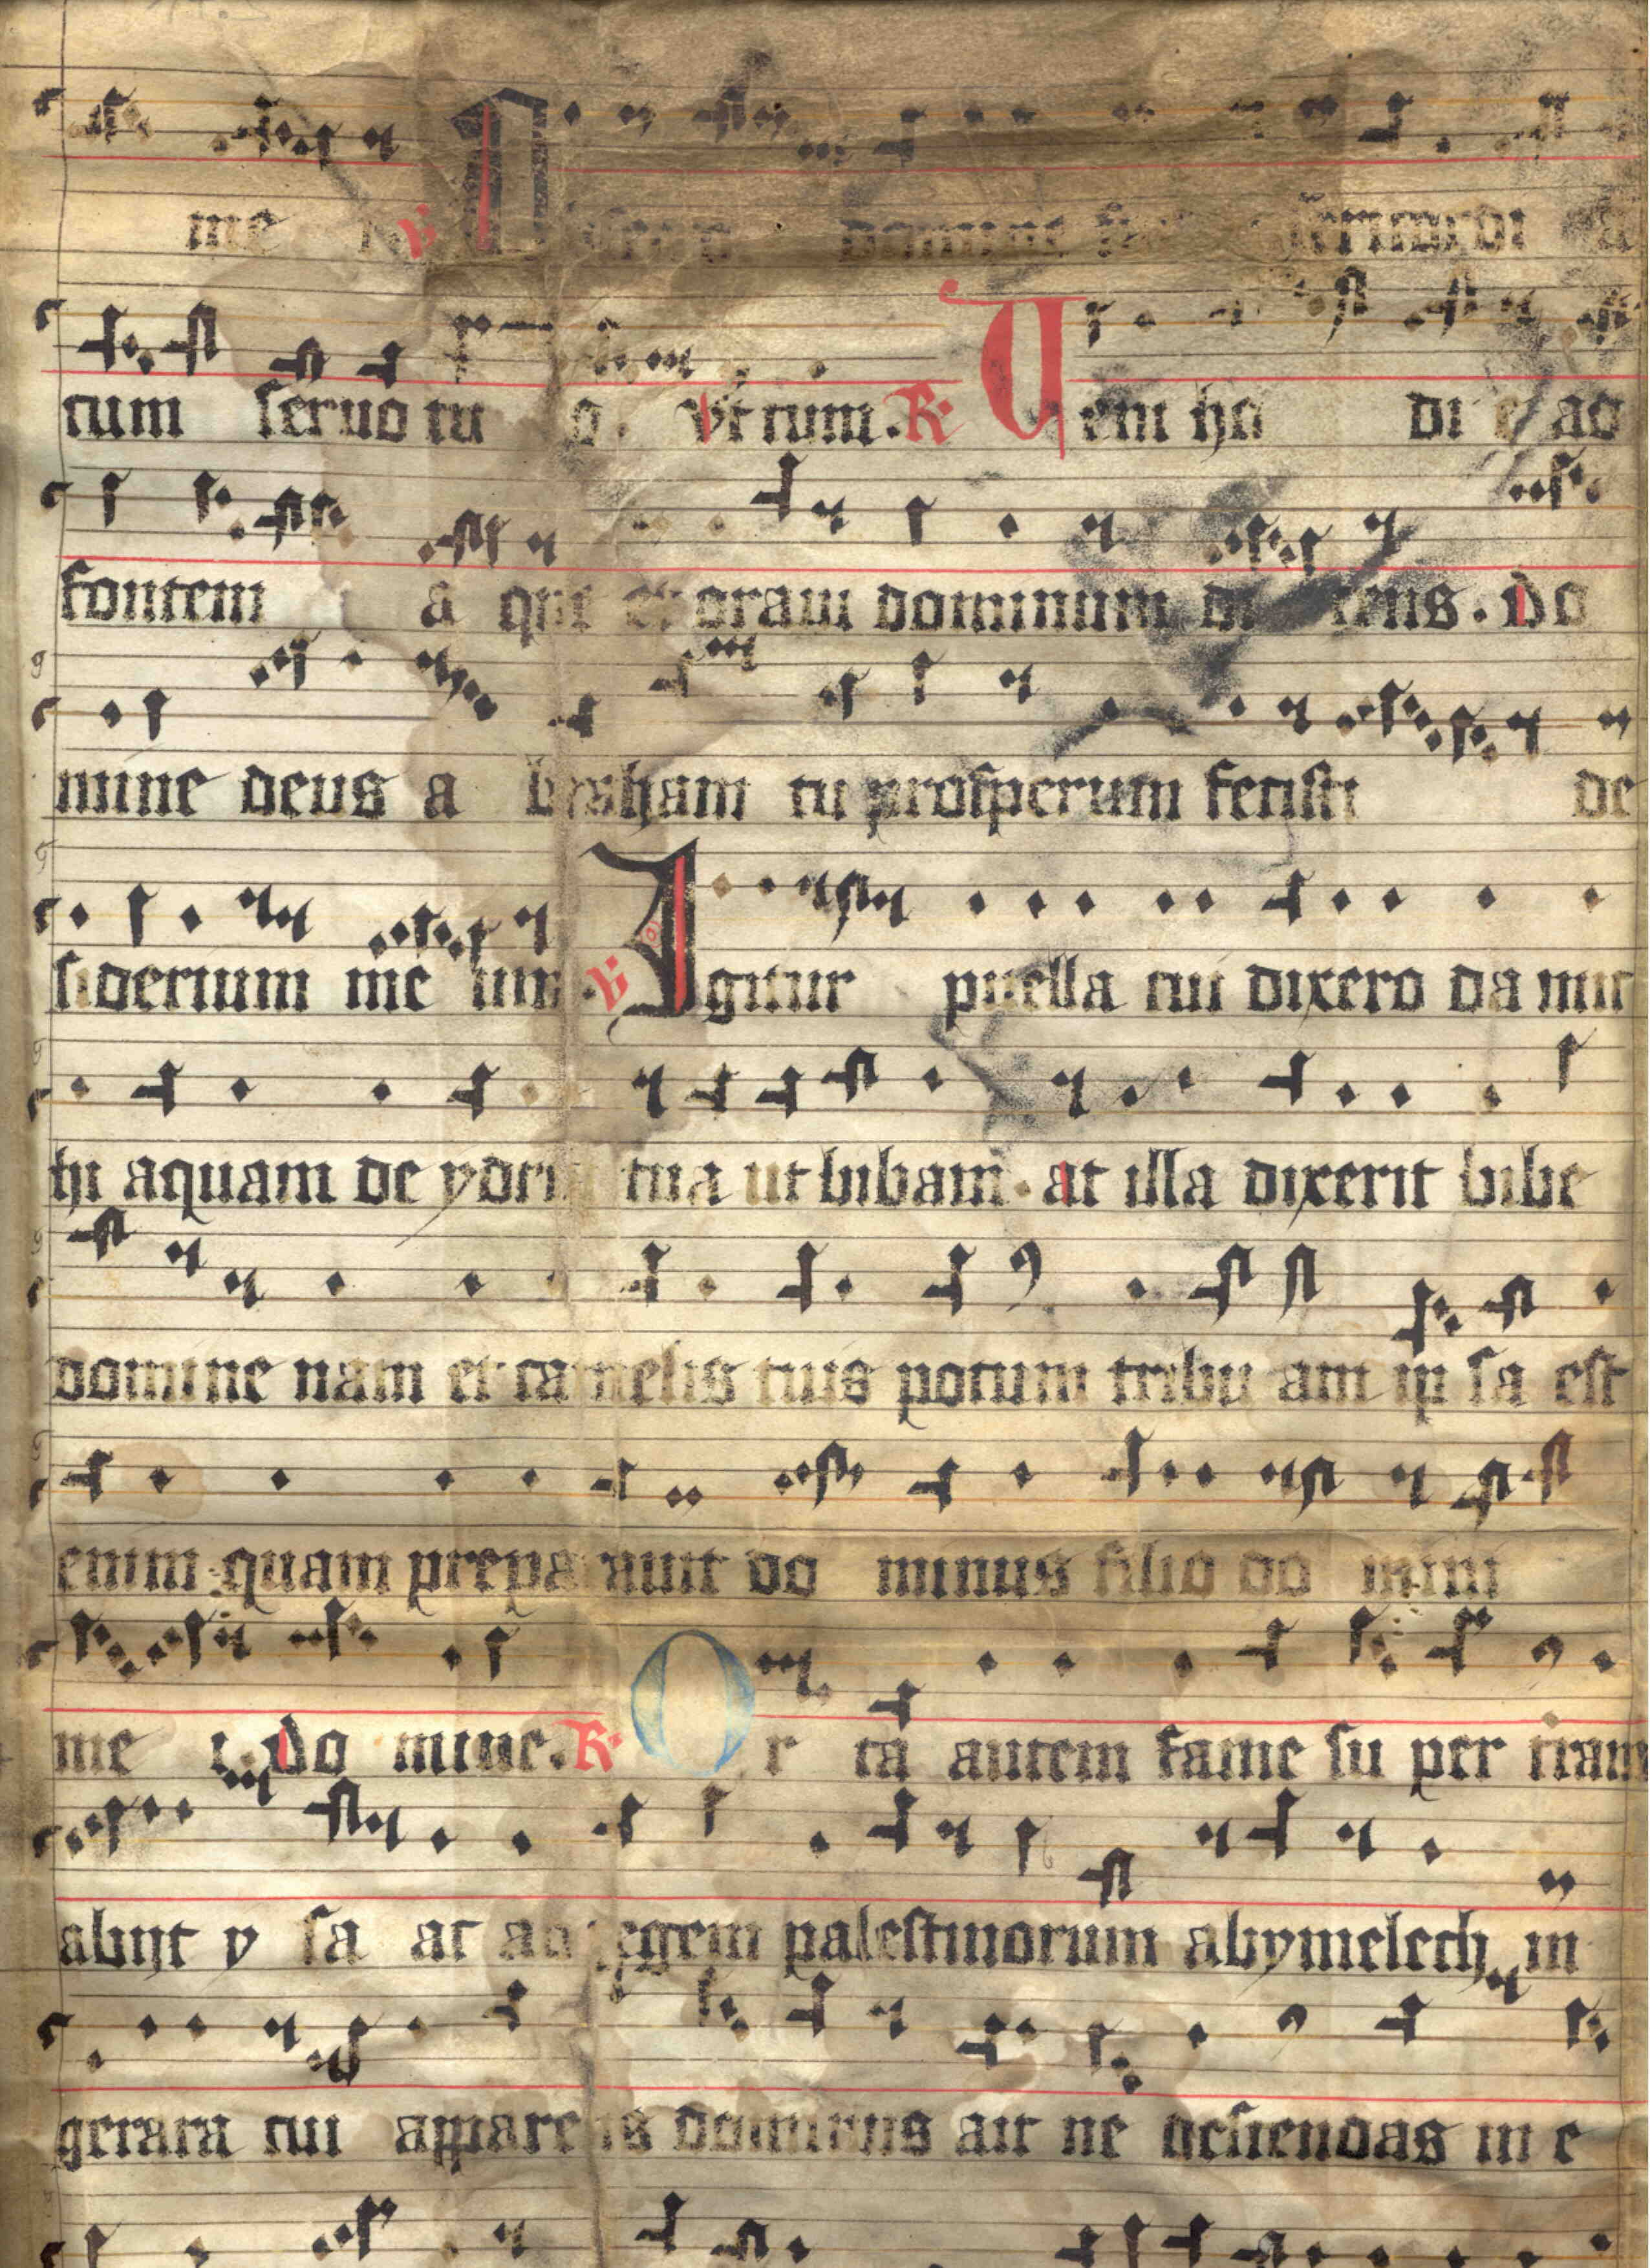 me
tum seruo tu o. vt cum. R Veni ho di e ad
fontem a que et oraui dominum di cens. Do
mine deus a braham tu prosperum fecisti de
siderium me um. V Igitur puella cui dixero da mic
hi aquam de ydria tua ut bibam. at illa dixerit bibe
domine nam et camelis tuis potum tribu am ip sa est
enim quam prepa rauit do minus filio do mini
me i. Do mine. R O r ta autem fame su per tram
abijt y sa ac ad regem palestinorum abymelech in
gerara cui appare ns dominus ait ne descendas in e